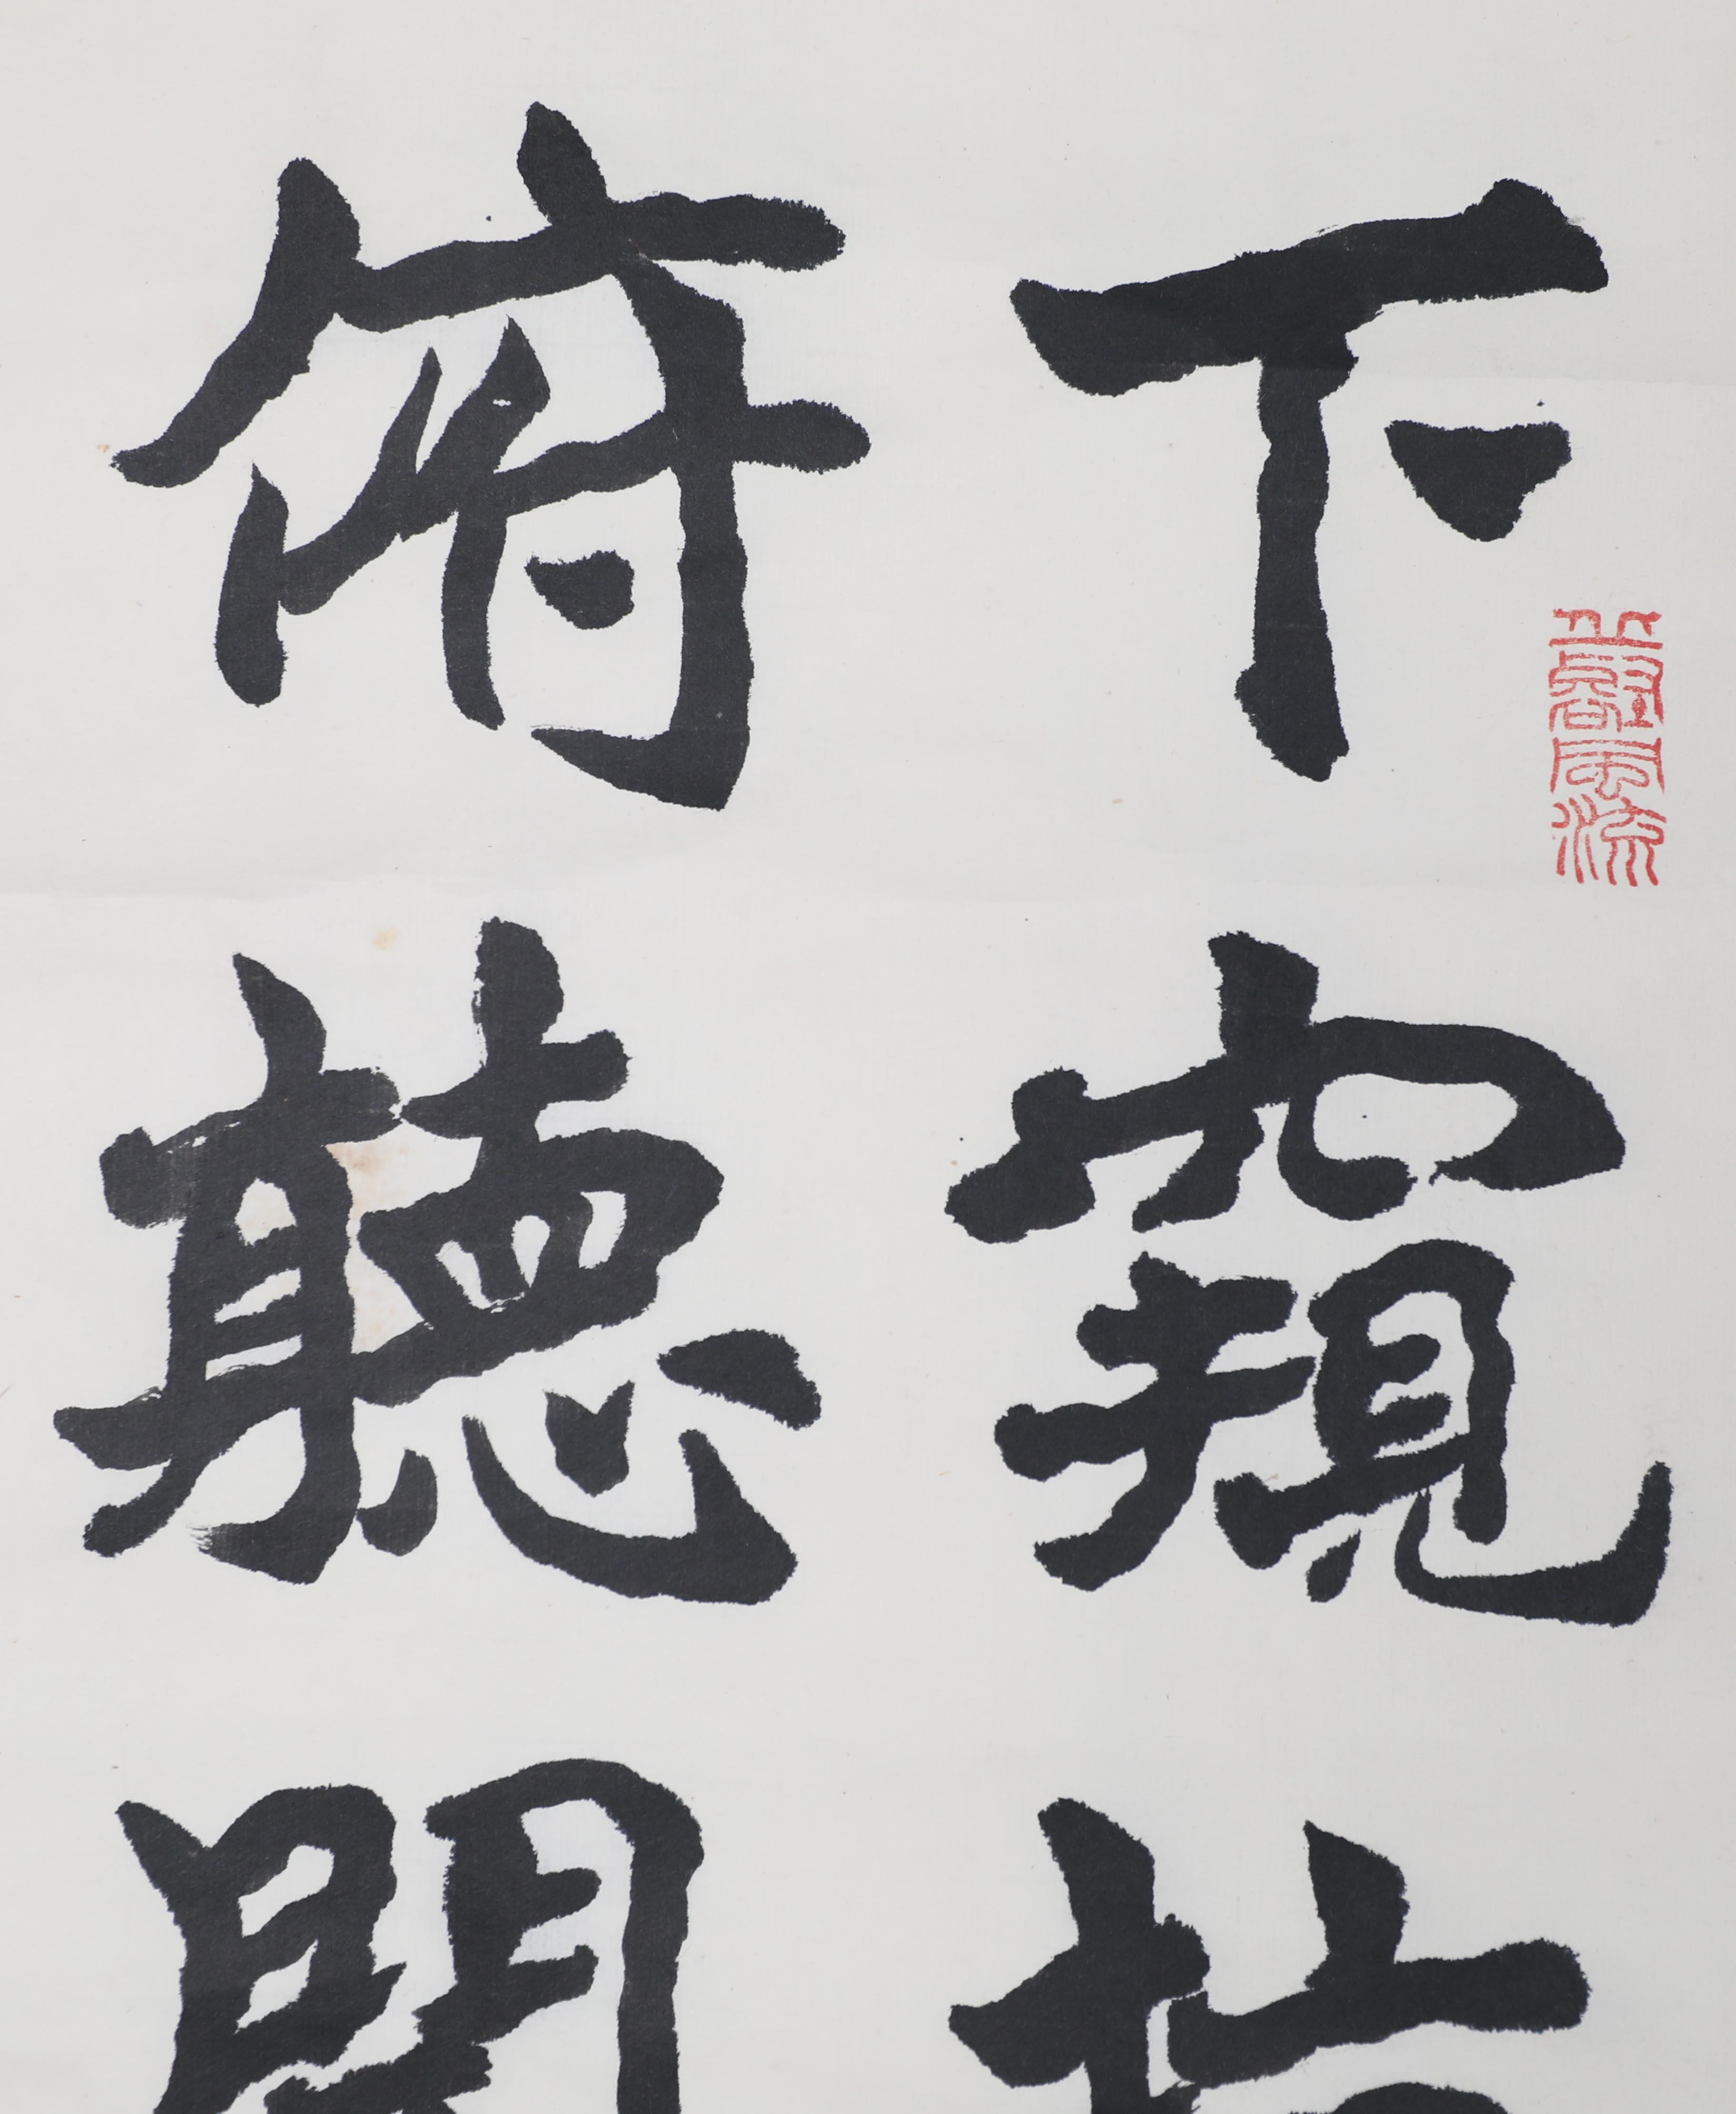 下窺指
俯聽聞